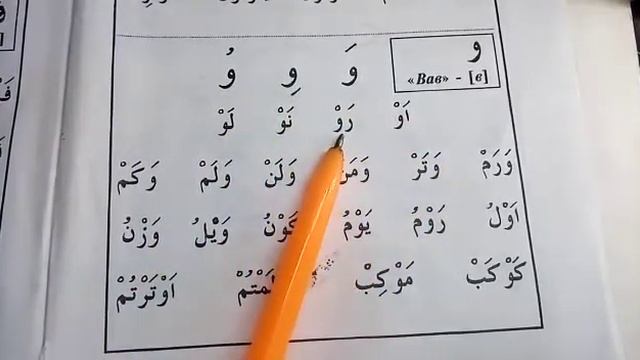 و
«Вав» - [в]
وَ وِ وُ
اَوْ رَوْ نَوْ لَوْ
وَرَمْ وَتَرْ وَمَنْ وَلَنْ وَلَمْ وَكَمْ
اَوْلُ رَوْمُ يَوْمُ كَوْنُ وَيْلُ وَزْنُ
كَوْكَبْ مَوْكِبْ اَوْتَرْتُمْ